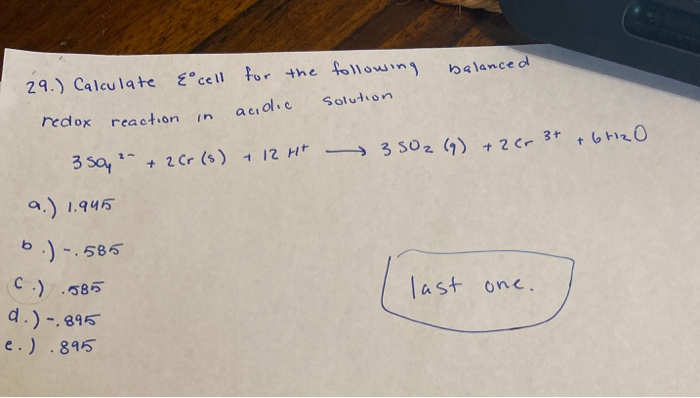 29.) Calculate ℰ°cell for the following balanced
redox reaction in acidic solution
3 SO₄²⁻ + 2Cr (s) + 12 H⁺ → 3 SO₂ (g) + 2 Cr³⁺ + 6 H₂O
a.) 1.945
b.) -.585
c.) .585
d.) -.895
e.) .895
last one.